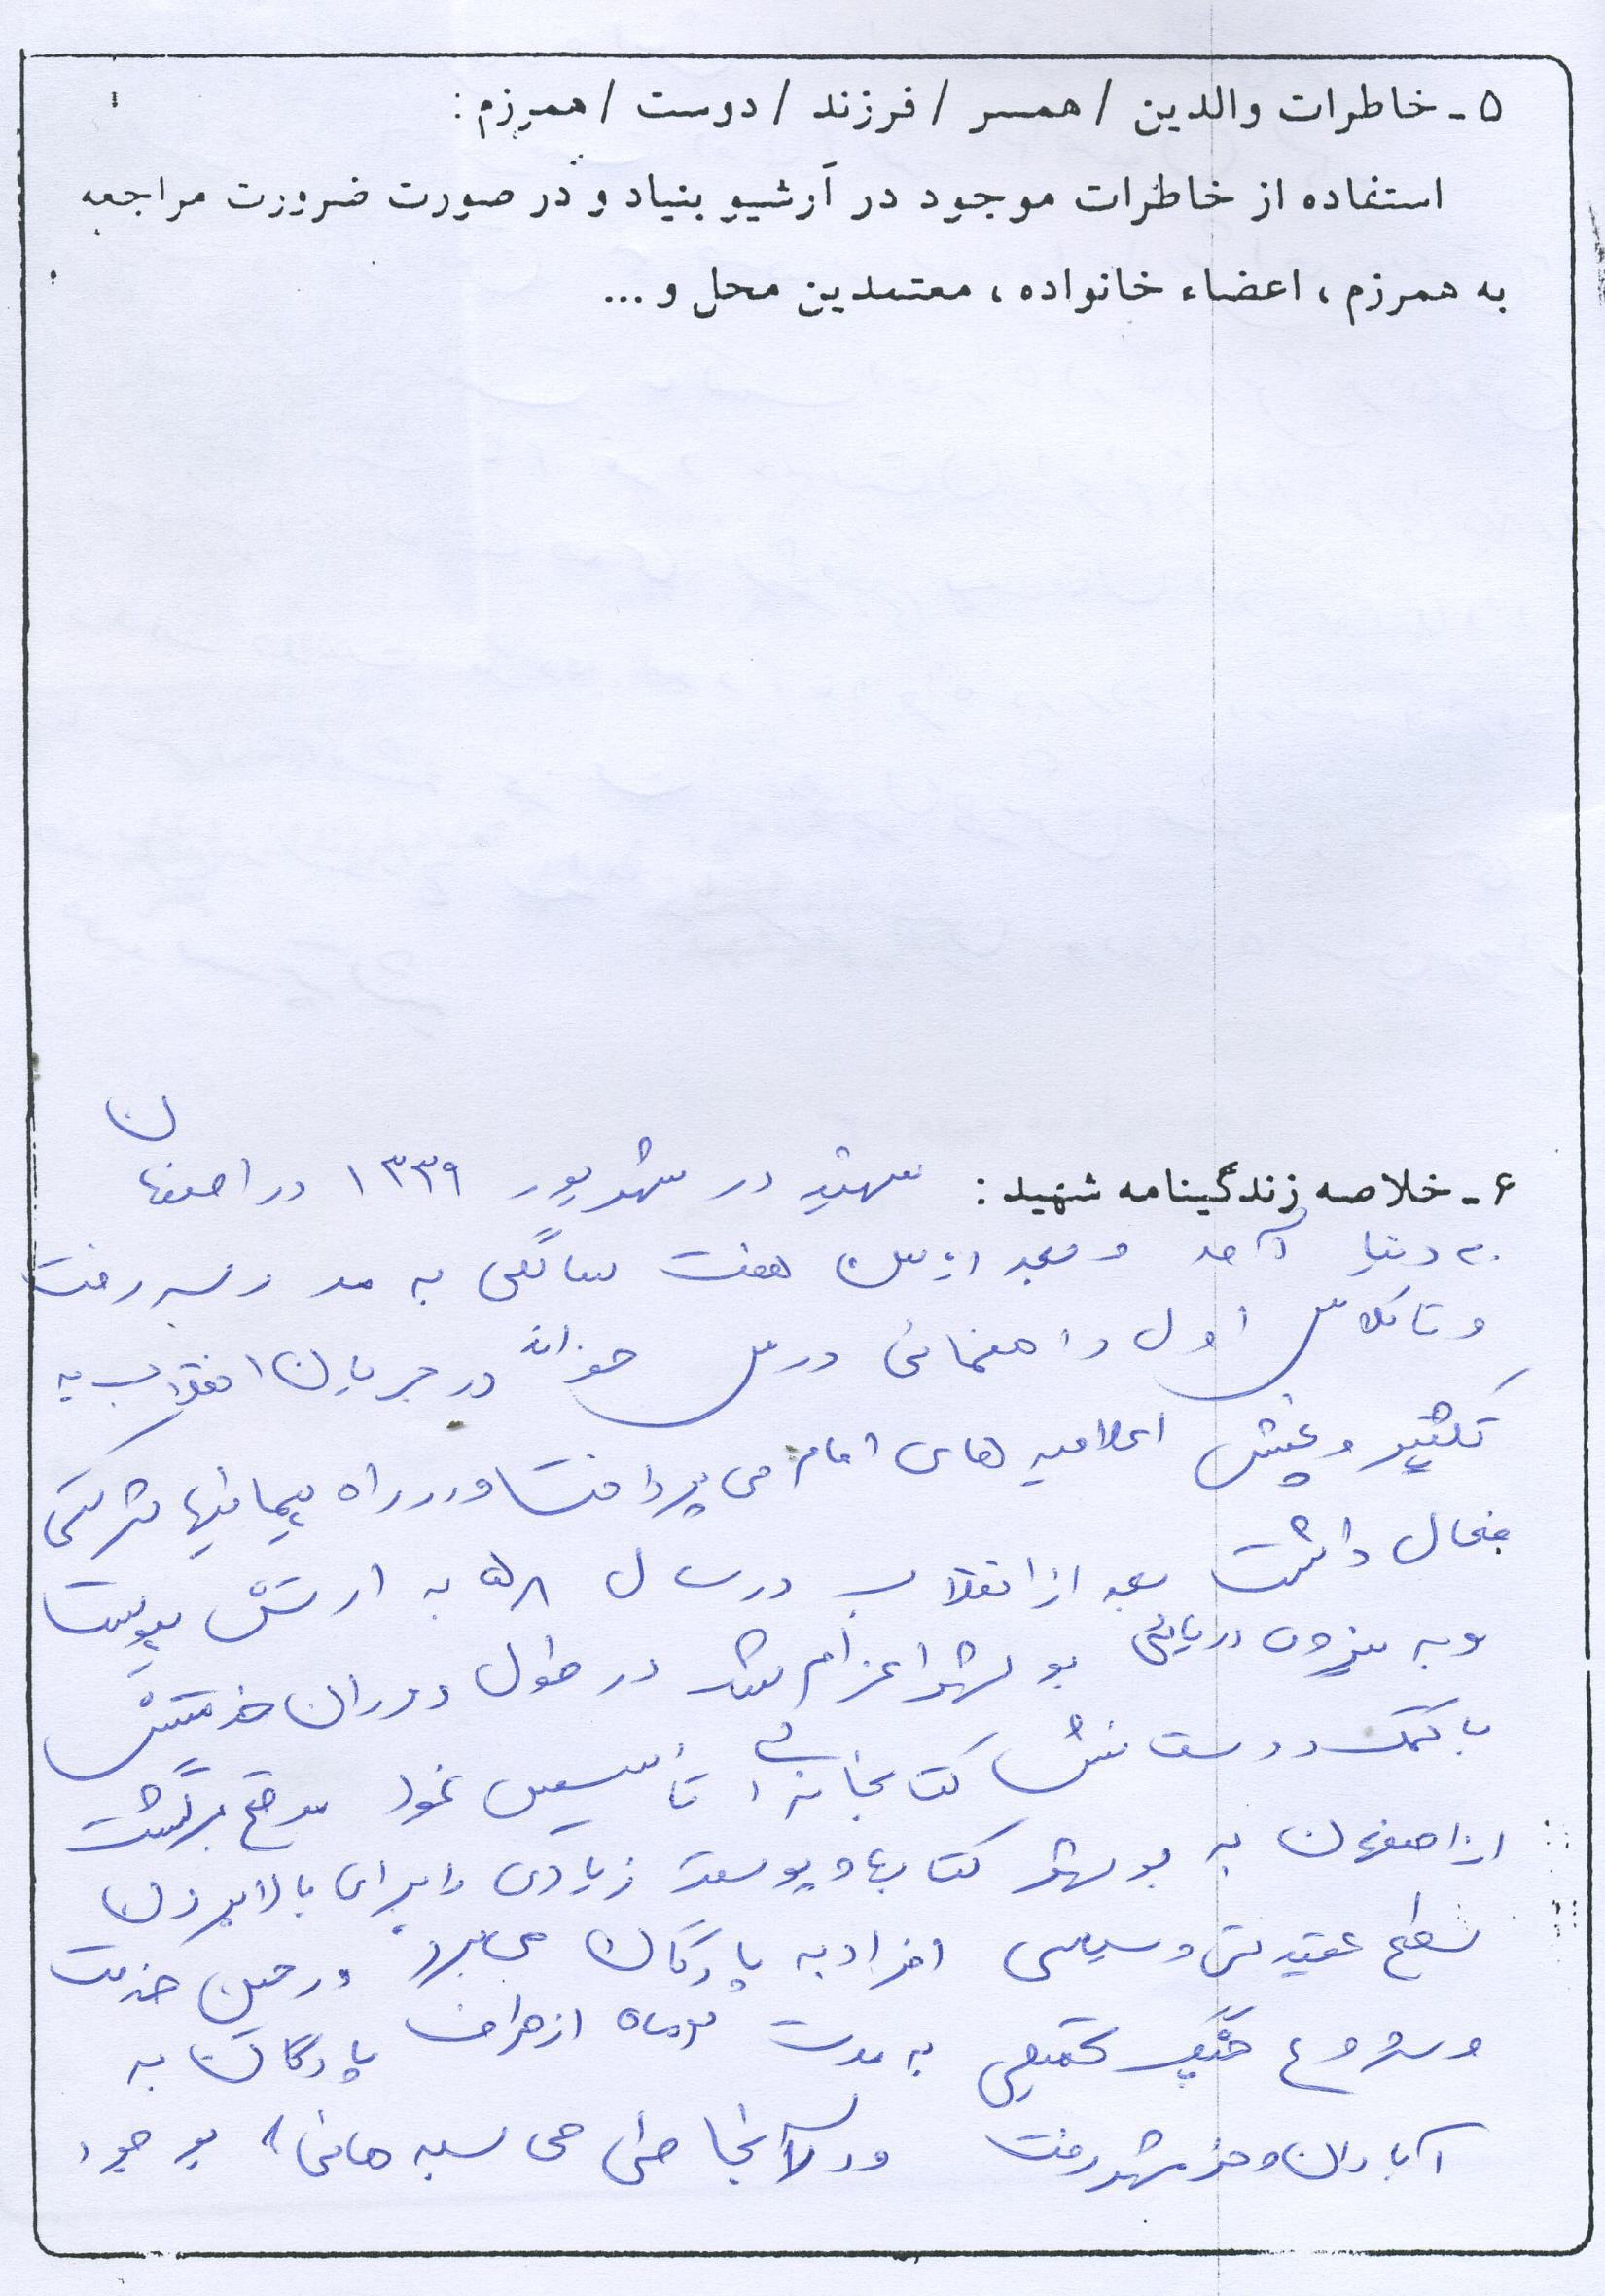 ۵ - خاطرات والدین / همسر / فرزند / دوست / همرزم :
استفاده از خاطرات موجود در آرشیو بنیاد و در صورت ضرورت مراجعه
به همرزم ، اعضاء خانواده ، معتمدین محل و ...
۶ - خلاصه زندگینامه شهید : شهید در شهریور ۱۳۳۹ در اصفهان
به دنیا آمد و بعد از سن هفت سالگی به مدرسه رفت
و تا کلاس اول راهنمائی درس خواند در جریان انقلاب به
تکثیر و پخش اعلامیه های امام می پرداخت و در راه پیمائیها شرکتی
فعال داشت بعد از انقلاب در سال ۵۸ به ارتش پیوست
و به نیروی دریائی بوشهر اعزام شد در طول دوران خدمتش
با کمک دوستانش کتابخانه ای تأسیس نمود موقع برگشت
از اصفهان به بوشهر کتاب و پوستر زیادی را برای بالا بردن
سطح عقیدتی و سیاسی افراد به پادگان می برد در حین خدمت
و شروع جنگ تحمیلی به مدت ماه از طرف پادگان به
آبادان و خرمشهر رفت در آنجا بوجود